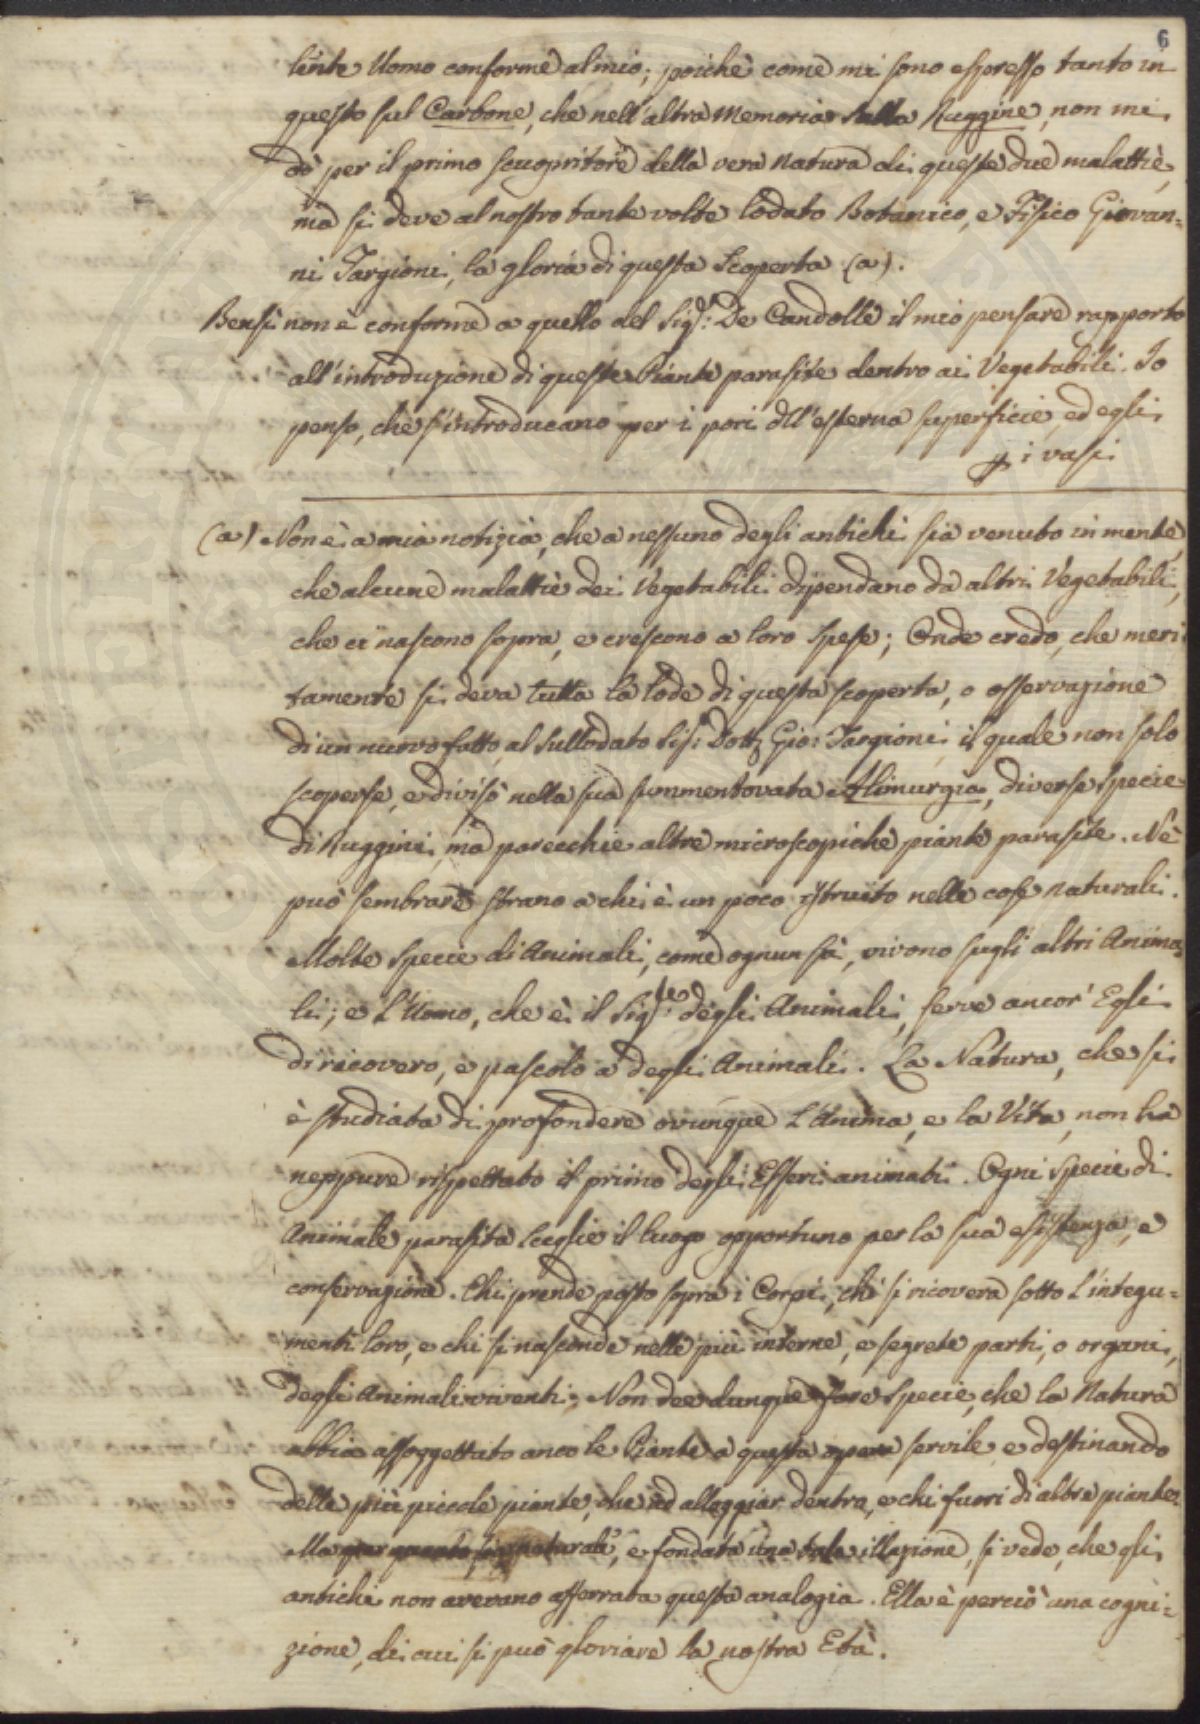 6
lente Uomo conforme al mio; poichè come mi sono espresso tanto in
questo sul Carbone, che nell'altra Memoria sulla Ruggine, non mi
dò per il primo scuopritore della vera natura di queste due malattie,
ma si deve al nostro tante volte lodato Botanico, e Fisico Giovan=
ni Targioni, la gloria di questa Scoperta (a).
Bensì non è conforme a quello del Sig.r De Candolle il mio pensare rapporto
all'introduzione di queste Piante parasite dentro ai Vegetabili. Io
penso, che s'introducano per i pori dell'esterna superficie, ed egli
i vasi
(a) Non è a mia notizia, che a nessuno degli antichi sia venuto in mente,
che alcune malattie dei Vegetabili dipendano da altri Vegetabili,
che ci nascono sopra, e crescono a loro spese; Onde credo, che meri
tamente si deva tutta la lode di questa scoperta, o osservazione
di un nuovo fatto, al sullodato Sig.r Dott. Gio: Targioni, il quale non solo
scoperse, e divisò nella sua summentovata Alimurgia, diverse specie
di Ruggini, ma parecchie altre microscopiche piante parasite. Nè
può sembrare strano a chi è un poco istruito nelle cose naturali.
Molte specie di Animali, come ognun sà, vivono sugli altri Anima
li; e L'Uomo, che è il Sig.re degli Animali, serve ancor' Egli
di ricovero, e pascolo a degli Animali. La Natura, che si
è studiata di profondere ovunque L'Anima, e la Vita, non ha
neppure rispettato il primo degli Esseri animati. Ogni specie di
Animale parasita sceglie il luogo opportuno per la sua esistenza, e
conservazione. Chi prende posto sopra i Corpi, chi si ricovera sotto L'integu=
menti loro, e chi si nasconde nelle più interne, e segrete parti, o organi,
degli Animali viventi; Non dee dunque fare specie, che la Natura
abbia assoggettato anco le Piante a questa opera servile, e destinando
delle più piccole piante, che ad alloggiar dentro, e chi fuori di altre piante.
Ma per quanto sia naturale, e fondata una tale illazione, si vede, che gli
antichi non avevano afferrata questa analogia. Ella è perciò una cogni=
zione, di cui si può gloriare la nostra Età.